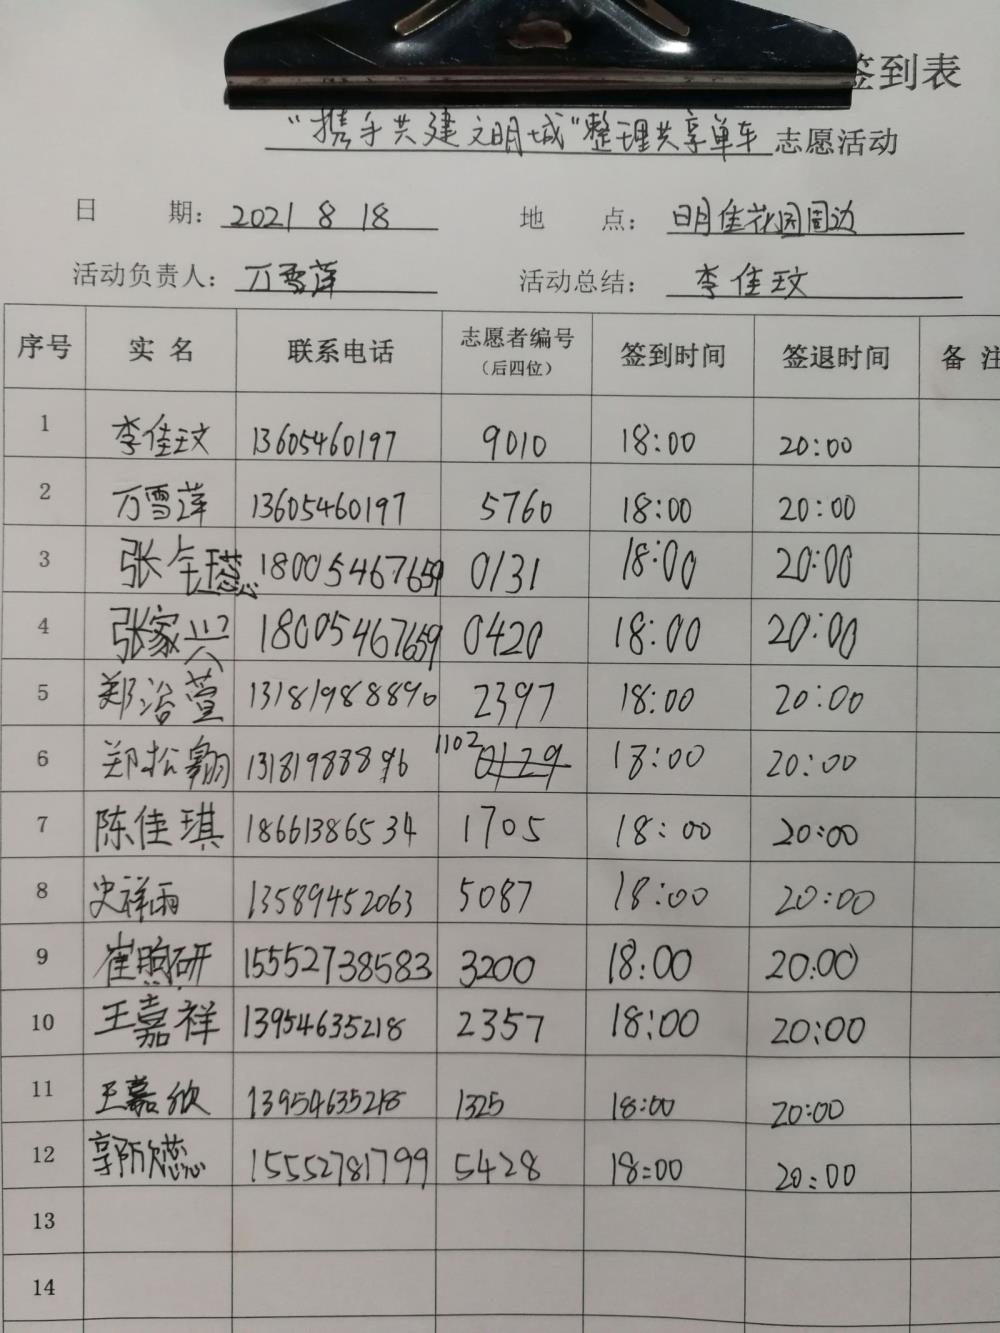 签到表
“携手共建文明城”整理共享单车 志愿活动
日 期：2021 8 18 地 点：明佳花园周边
活动负责人：万雪莲 活动总结：李佳玟
序号 实 名 联系电话 志愿者编号（后四位） 签到时间 签退时间 备 注
1 李佳玟 13605460197 9010 18:00 20:00
2 万雪莲 13605460197 5760 18:00 20:00
3 张钰蕊 18005467659 0131 18:00 20:00
4 张家兴 18005467659 0420 18:00 20:00
5 郑洽萱 13181988890 2397 18:00 20:00
6 郑松 13181988896 1102 0129 18:00 20:00
7 陈佳琪 18661386534 1705 18:00 20:00
8 史祥雨 13589452063 5087 18:00 20:00
9 崔煦研 15552738583 3200 18:00 20:00
10 王嘉祥 13954635218 2357 18:00 20:00
11 王嘉欣 13954635218 1325 18:00 20:00
12 15552781799 5428 18:00 20:00
13
14